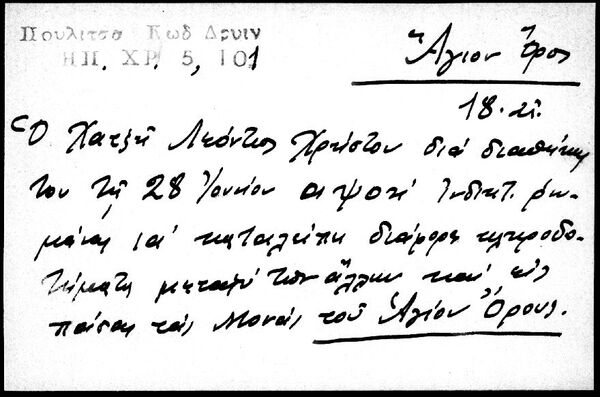 Πουλιτσα Κωδ Δρυιν
ΗΠ. ΧΡ. 5, 101
Ἅγιον Ὄρος
18. αἰ.
Ὁ Χατζῆ Λεόντιος Χρήστου διά διαθήκης
του τῆς 28 Ἰουνίου αψοή Ἰνδικτ. ῥω-
μάνας ια' καταλείπει διάφορα κληροδο-
τήματα μεταξύ τῶν ἄλλων καί εἰς
πάσας τάς Μονάς τοῦ Ἁγίου Ὄρους.